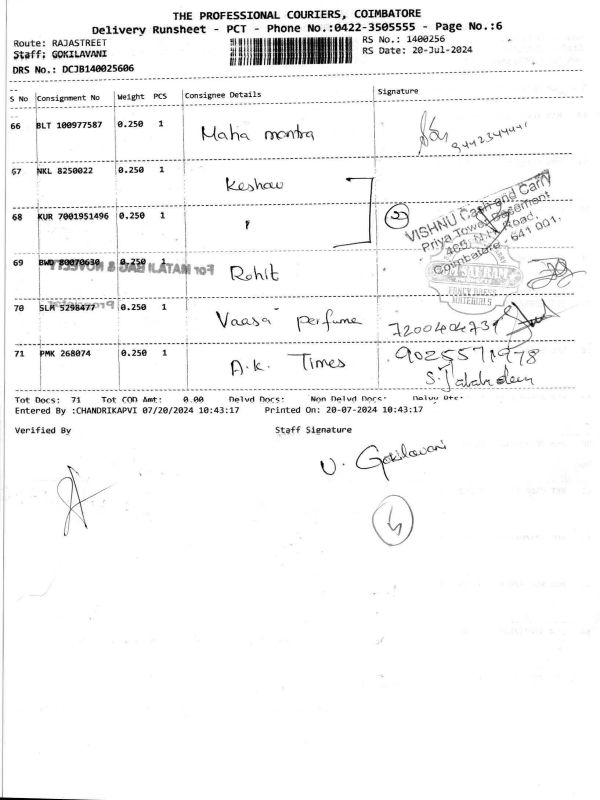 THE PROFESSIONAL COURIERS, COIMBATORE
Delivery Runsheet - PCT - Phone No.:0422-3505555 - Page No.:6
Route: RAJASTREET
RS No.: 1400256
Staff: GOKILAVANI
RS Date: 20-Jul-2024
DRS No.: DCJB140025606
S No Consignment No Weight PCS Consignee Details Signature
66 BLT 100977587 0.250 1 Maha mantra
67 NKL 8250022 0.250 1 Keshav
68 KUR 7001951496 0.250 1 " 2
VISHNU Cash and Carry
Priya Tower Basement
Road,
Coimbatore - 641 001.
69 BWD 80070630 0.250 1 Rohit
For MATAJI BAG & NOVELTY
FANCY DRESS
MATERIALS
70 SLM 5298477 0.250 1 Vaasa perfume 7200404731
Proprietor
71 PMK 268074 0.250 1 A.K. Times 9025571978
S. Jalabdeen
Tot Docs: 71 Tot COD Amt: 0.00 Delvd Docs: Non Delvd Docs:
Entered By :CHANDRIKAPVI 07/20/2024 10:43:17 Printed On: 20-07-2024 10:43:17
Verified By Staff Signature
V. Gokilavani